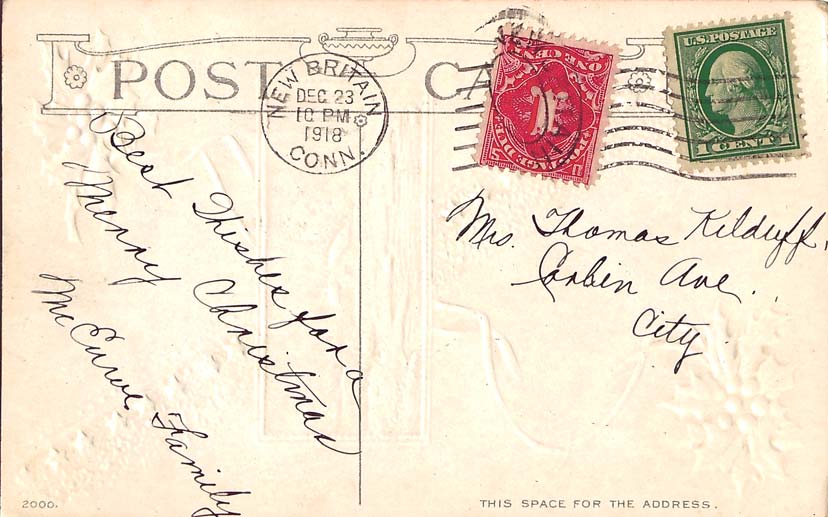 POST CARD
NEW BRITAIN
DEC 23
10 PM
1918
CONN.
ONE CENT
POSTAGE DUE
U.S. POSTAGE
1 CENT 1
Best Wishes for a
Merry Christmas
Family
Mrs. Thomas Kilduff,
Corbin Ave.
City.
2000.
THIS SPACE FOR THE ADDRESS.